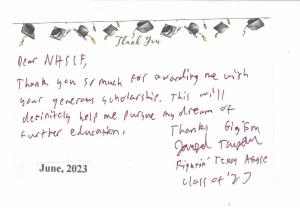 Thank You
Dear NHSSF,
Thank you so much for awarding me with
your generous scholarship. This will
definitely help me pursue my dream of
further education.
Thanks Gig'Em
Joseph
Fightin' Texas Aggie
Class of '27
June, 2023